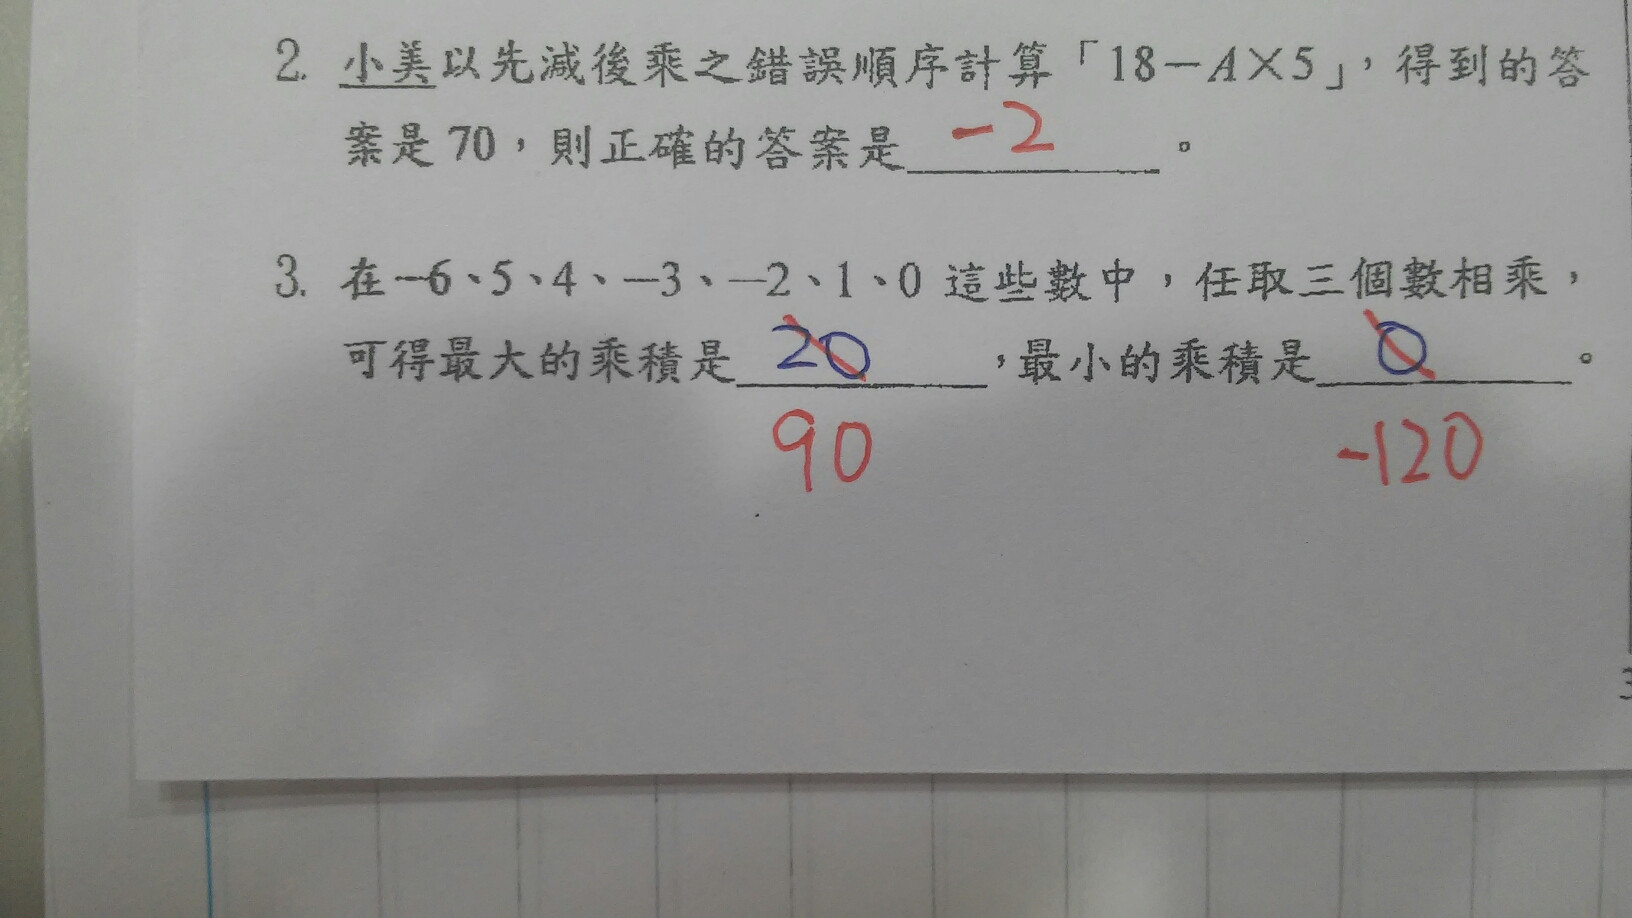 2. 小美以先減後乘之錯誤順序計算「18－A×5」，得到的答
案是 70，則正確的答案是 -2 。
3. 在－6、5、4、－3、－2、1、0 這些數中，任取三個數相乘，
可得最大的乘積是 20 ，最小的乘積是 0 。
90 -120
3